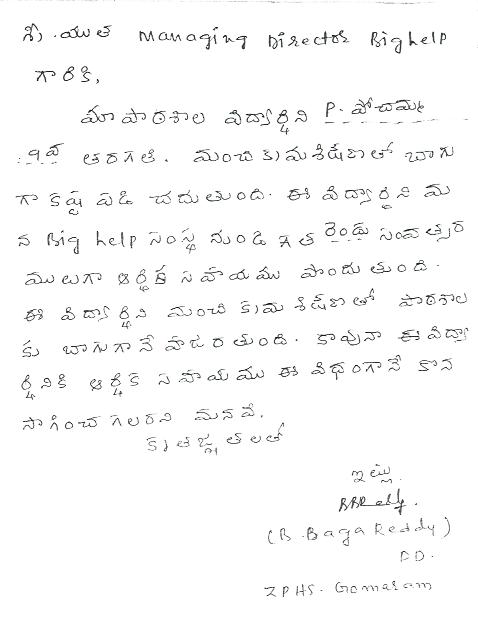 శ్రీ.యుత Managing Director Bighelp
గారికి,
మా పాఠశాల విద్యార్థిని P. పోచమ్మ
9వ తరగతి. మంచి క్రమశిక్షణతో బాగు
గా కష్ట పడి చదుతుంది. ఈ విద్యార్థిని మ
న Big help సంస్థ నుండి గత రెండు సంవత్సర
ములుగా ఆర్థిక సహాయము పొందుతుంది.
ఈ విద్యార్థిని మంచి క్రమశిక్షణతో పాఠశాల
కు బాగుగానే హాజరతుంది. కావునా ఈ విద్యా
ర్థినికి ఆర్థిక సహాయము ఈ విధంగానే కొన
సాగించగలరని మనవి.
కృతజ్ఞతలతో
ఇట్లు
BBReddy.
(B. Baga Reddy)
ZPHS. Gomaram